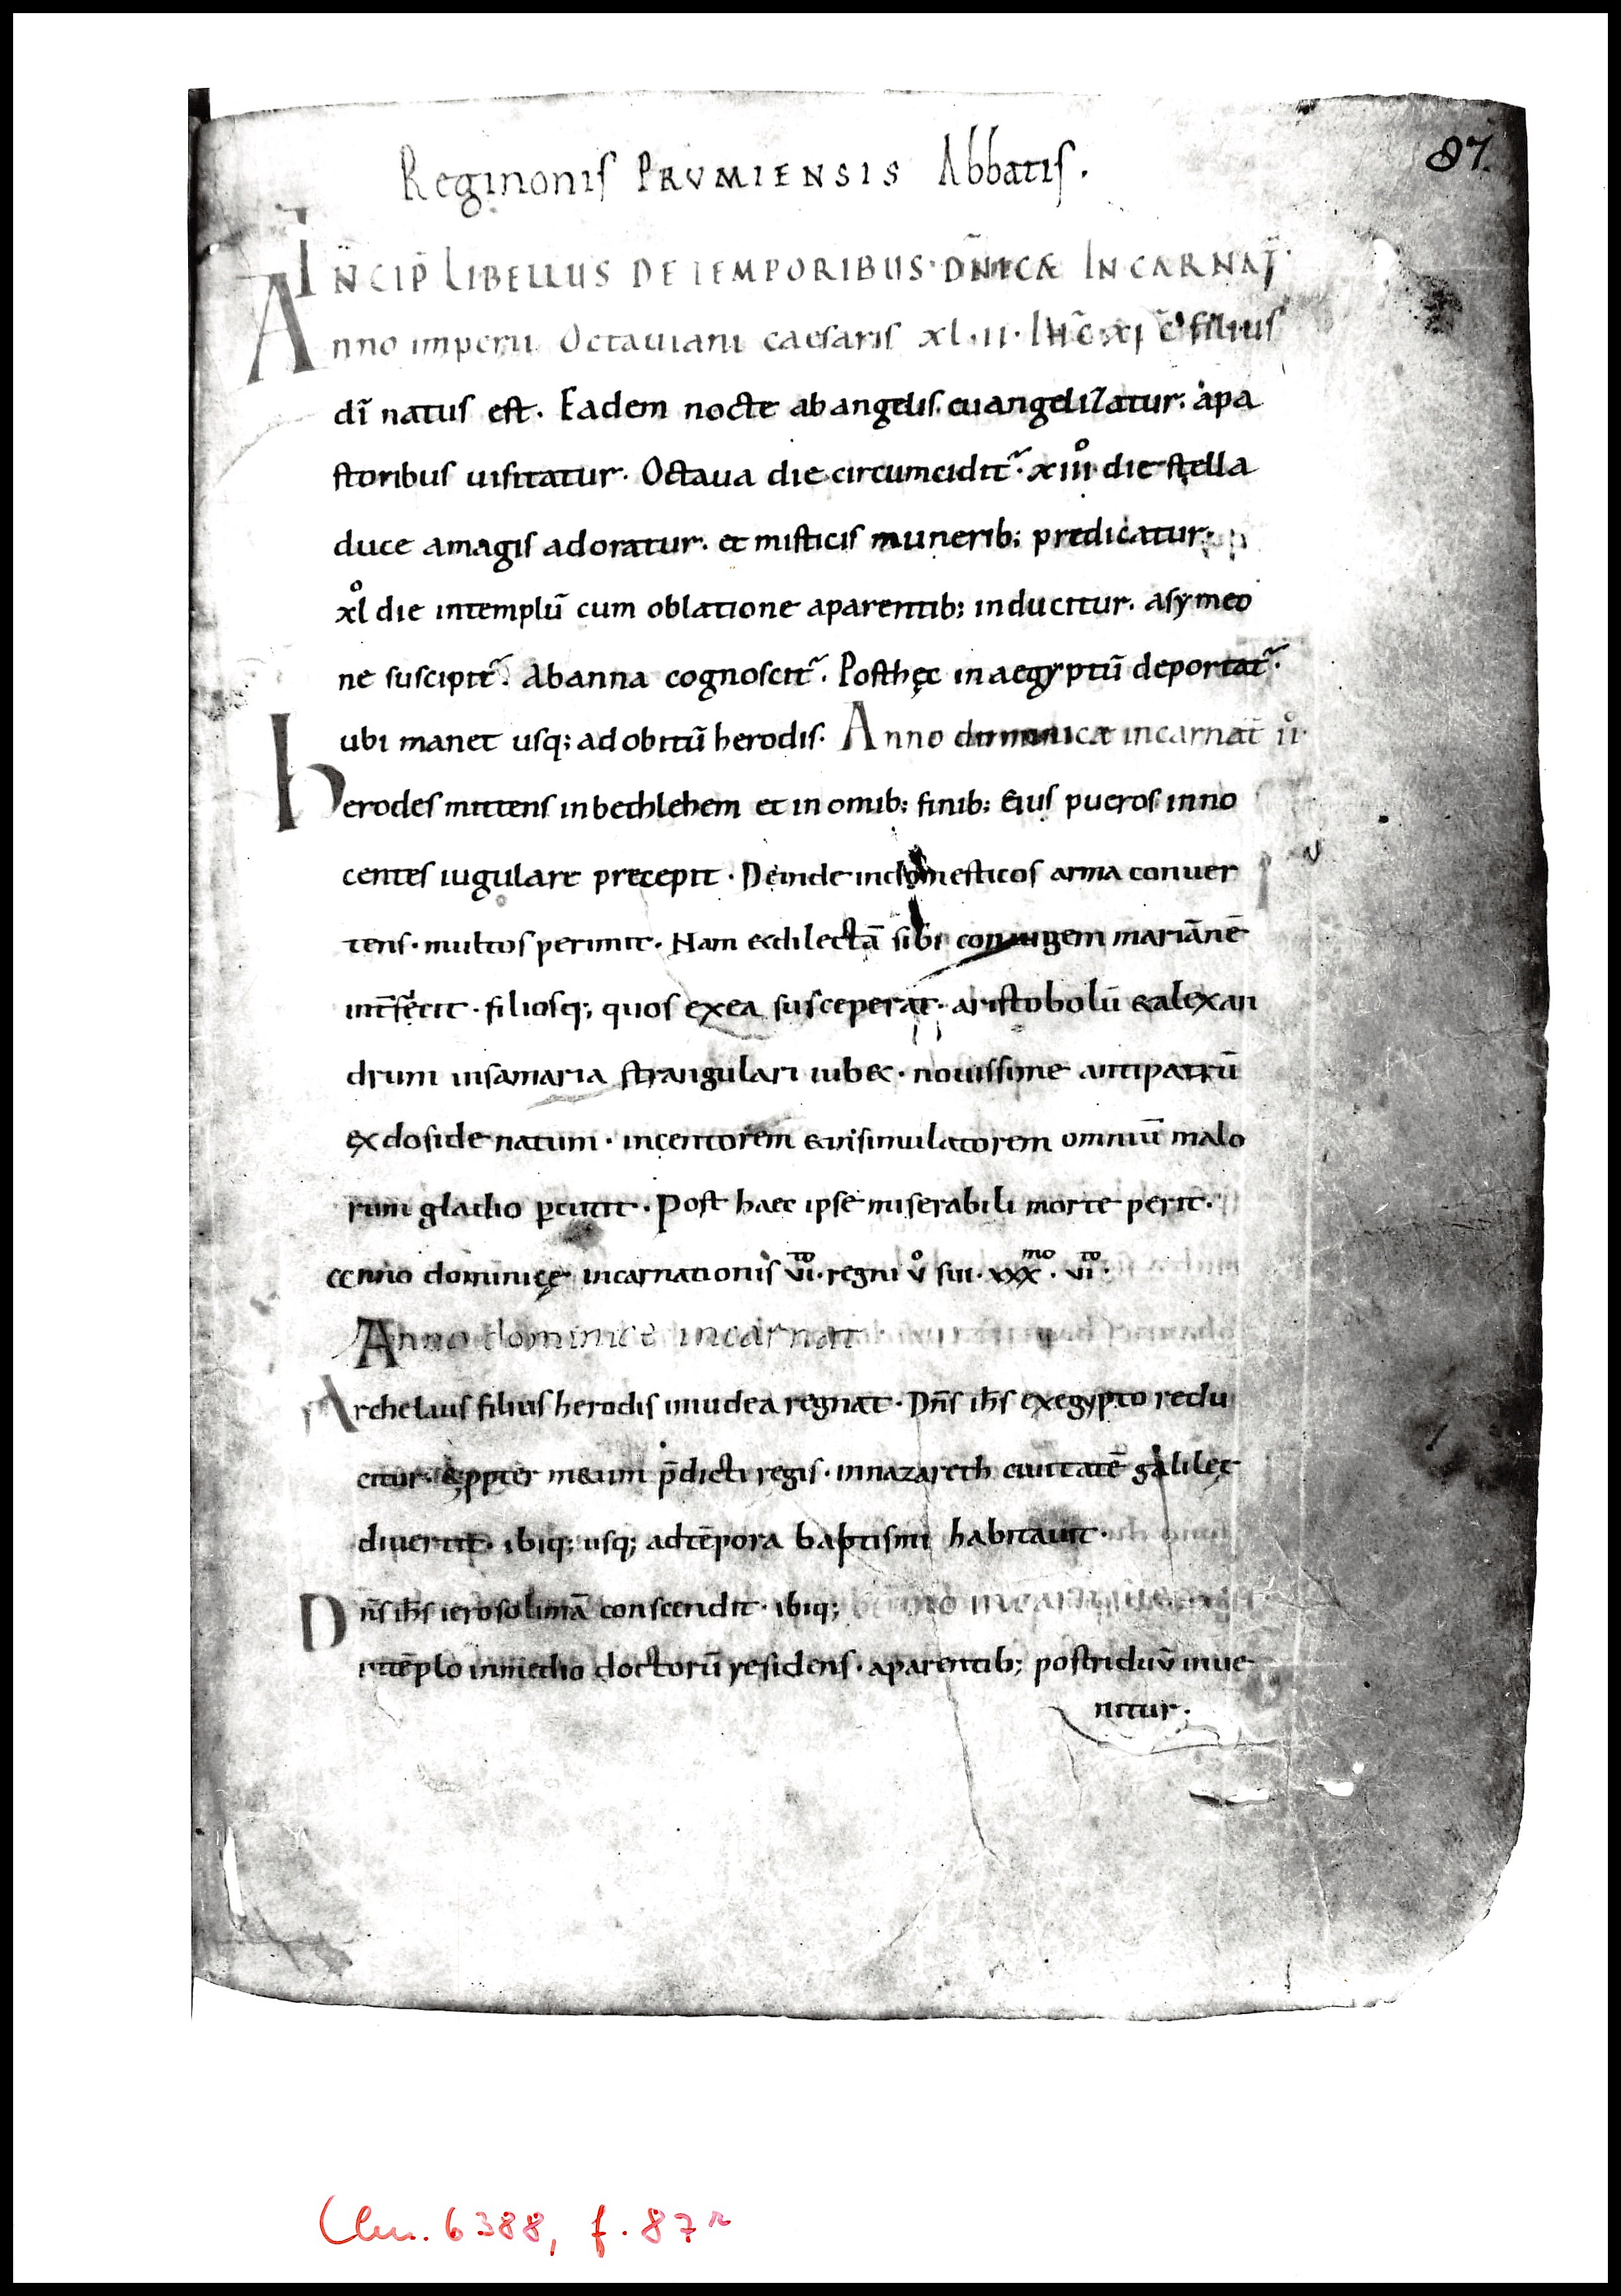 Reginonis PRVMIENSIS Abbatis.
87.
INCIP̄ LIBELLUS DE TEMPORIBUS·DN̄ICÆ INCARNAT̄·
Anno imperii Octauiani caesaris xl·ii· filius
dī natus est. Eadem nocte ab angelis euangelizatur. apa
storibus uisitatur. Octaua die circumcidit᷑. xiii° die stella
duce amagis adoratur. et misticis munerib; predicatur.
xl° die intemplū cum oblatione aparentib; inducitur. asymeo
ne suscipit᷑. Abanna cognoscit᷑. Posthęc inaegyptū deportat᷑.
ubi manet usq; ad obitū herodis. Anno dominicæ incarnat̄ ii°
herodes mittens inbethlehem et in omib; finib; eius pueros inno
centes iugulare precepit. Deinde indomesticos arma conuer
tens. multos perimit. Nam &dilectā sibi coniugem mariānē
int̄fecit. filiosq; quos exea susceperat. aristobolū &alexan
drum insamaria strangulari iub&. nouissime antipatrū
exdoside natum. incentorem &uisimulatorem omniū malo
rum gladio ꝑcutit. Post haec ipse miserabili morte perit.
anno dominicę incarnationis vi^to. regni v° sui. xxx^mo. vi^to.
Anno dominice incarnat
Archelaus filius herodis iniudea regnat. Dn̄s ih̄s exegypto redu
citur. &ꝓpter m&um p̄dicti regis. innazareth ciuitatē galileę
diuertit. ibiq; usq; adtēpora baptismi habitauit.
Dn̄s ih̄s ierosolimā conscendit. ibiq;
intēplo inmedio doctorū residens. aparentib; postriduū inue
nitur.
Clm. 6388, f. 87r